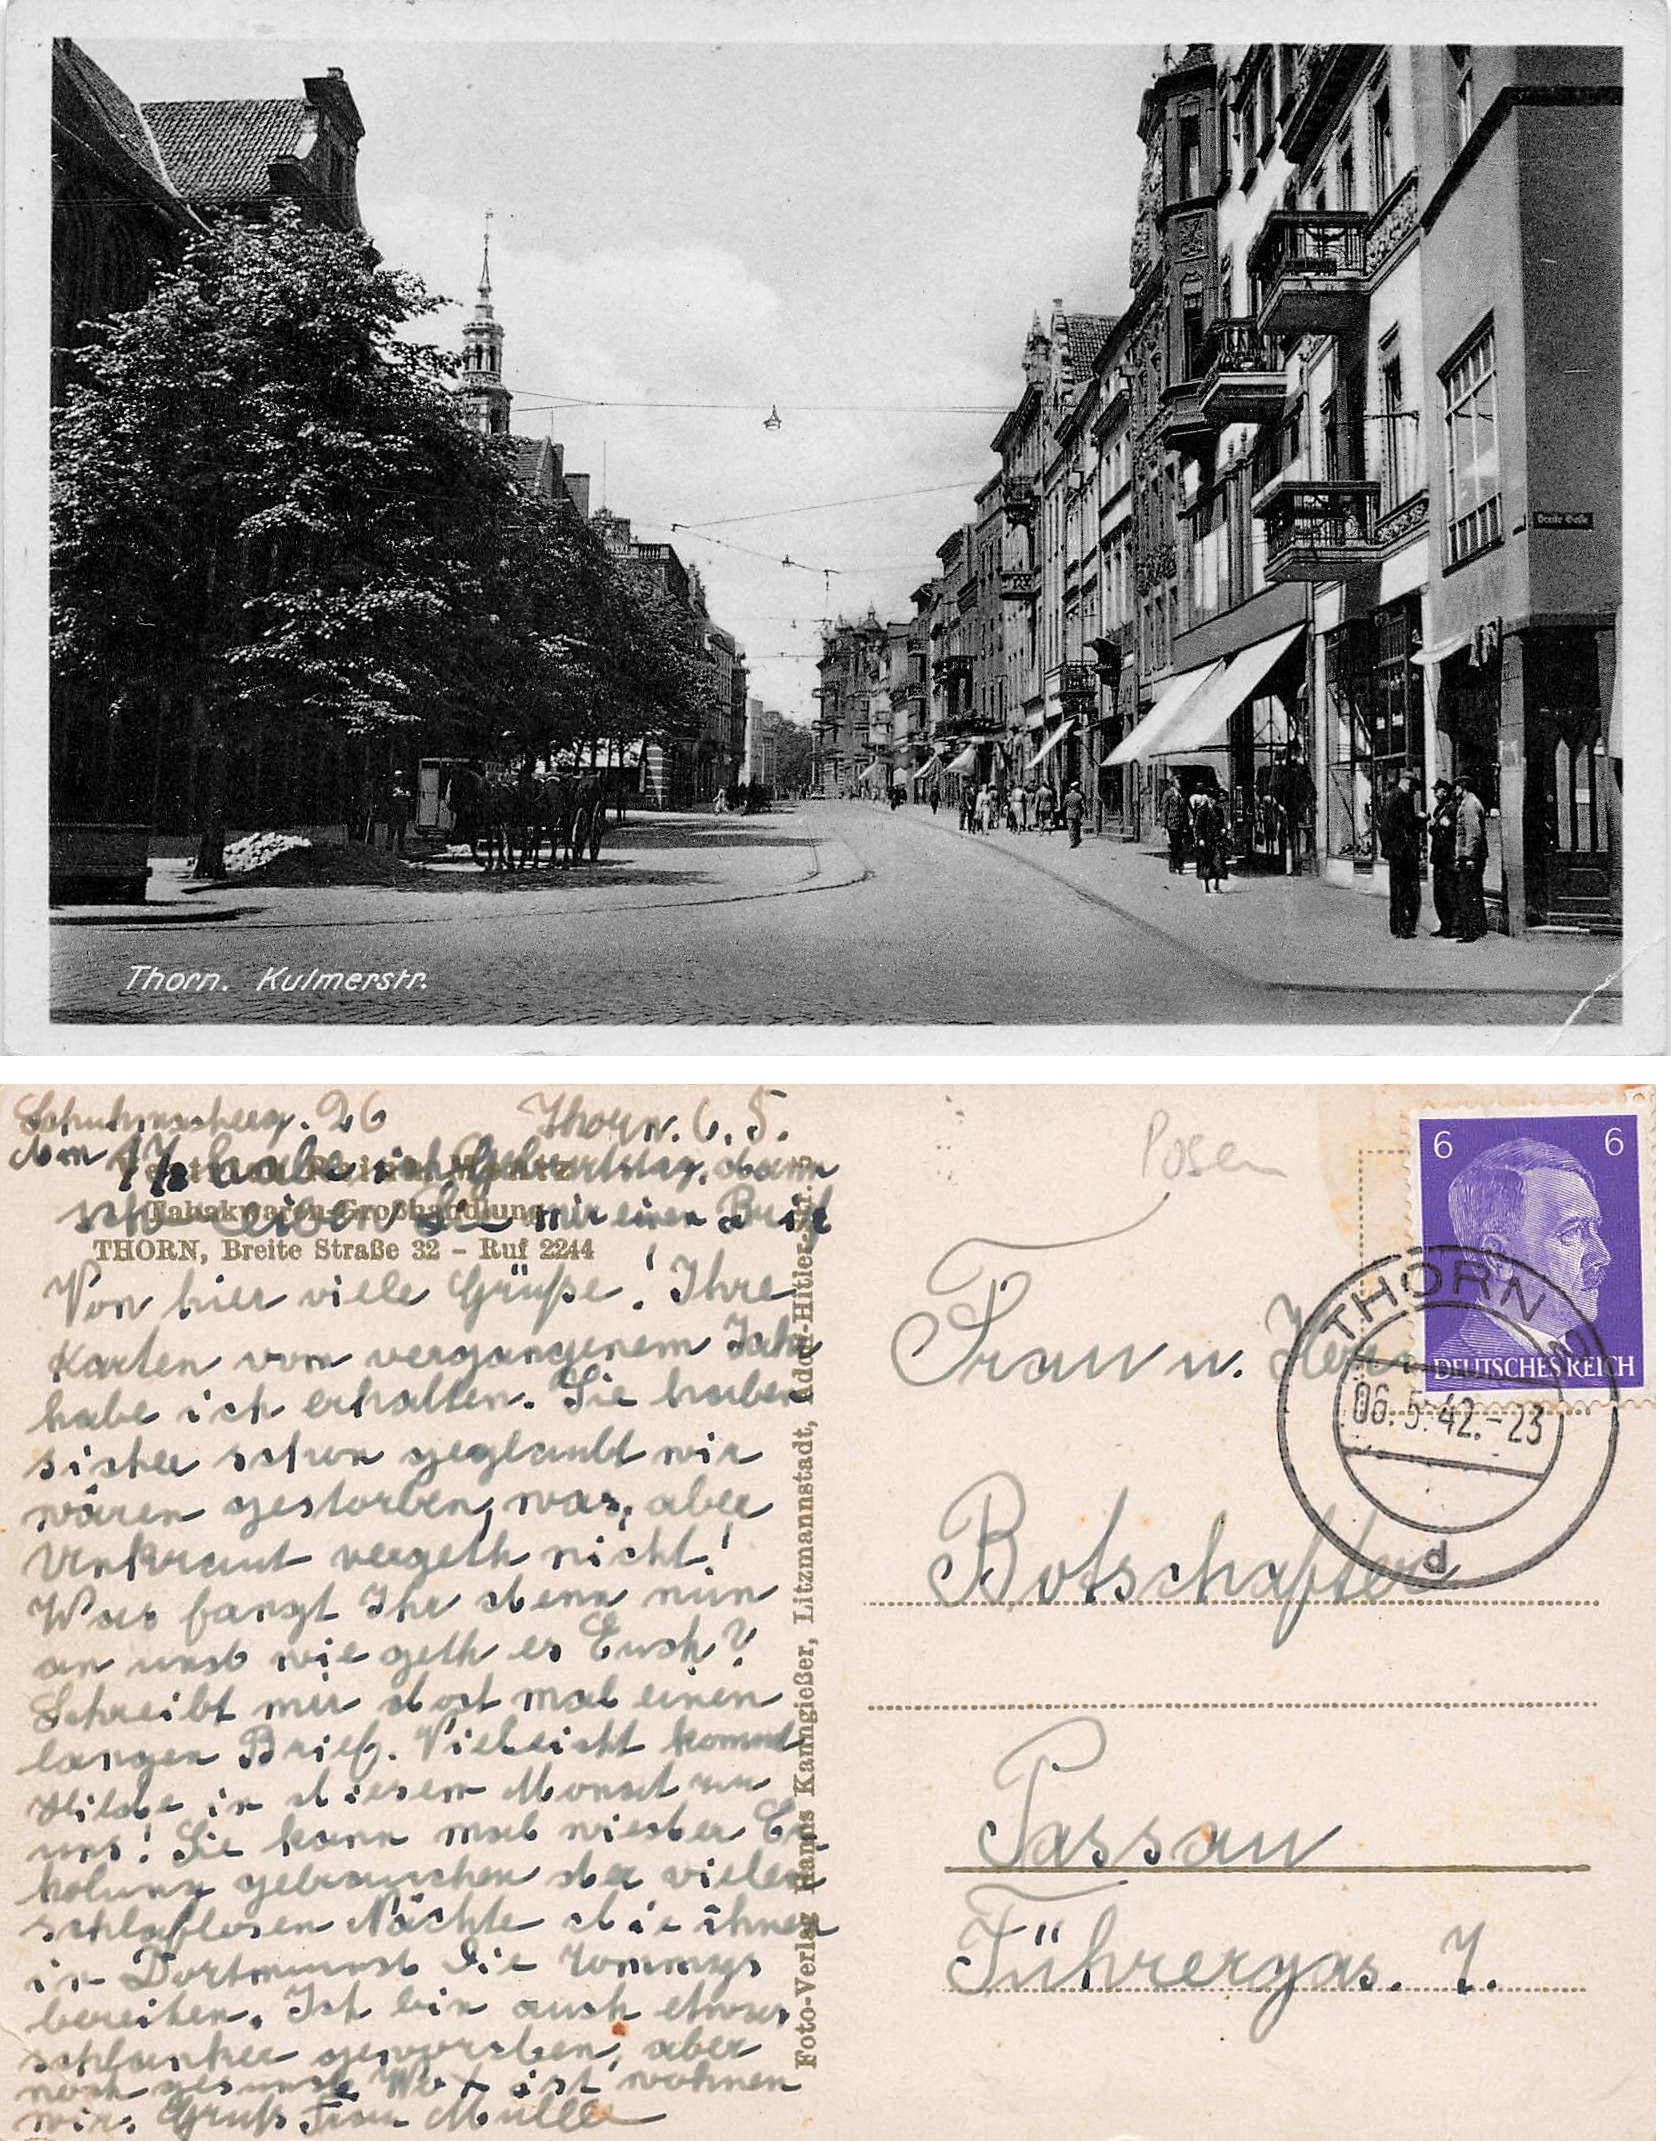 Thorn. Kulmerstr.
26 Thorn. 6. 5.
Am 17 habe ich Geburtstag, dann
schreiben Sie mir einen Brief
Tabakwaren-Großhandlung
THORN, Breite Straße 32 – Ruf 2244
Von hier viele Grüße! Ihre
Karten vom vergangenem Jahr
habe ich erhalten. Sie haben
sicher schon geglaubt wir
wären gestorben, was, aber
Unkraut vergeth nicht!
Was fangt Ihr denn nun
an und wie geth es Euch?
Schreibt mir doch mal einen
langen Brief. Vieleicht kommt
Hilde in diesem Monat zu
uns! Sie kann mal wieder Er
holung gebrauchen der vielen
schlaflosen Nächte die ihnen
in Dortmund die Tommys
bereiten. Ich bin auch etwas
schlanker geworden, aber
noch gesund. Wo ist wohnen
wir. Gruß Frau Müller
Foto-Verlag Hanns Kanngießer, Litzmannstadt, Adolf-Hitler-Str.
Posen
6 6
DEUTSCHES REICH
THORN 2
06.5.42.-23
d
Frau u. Herr
Botschafter
Passau
Führergas. 7.